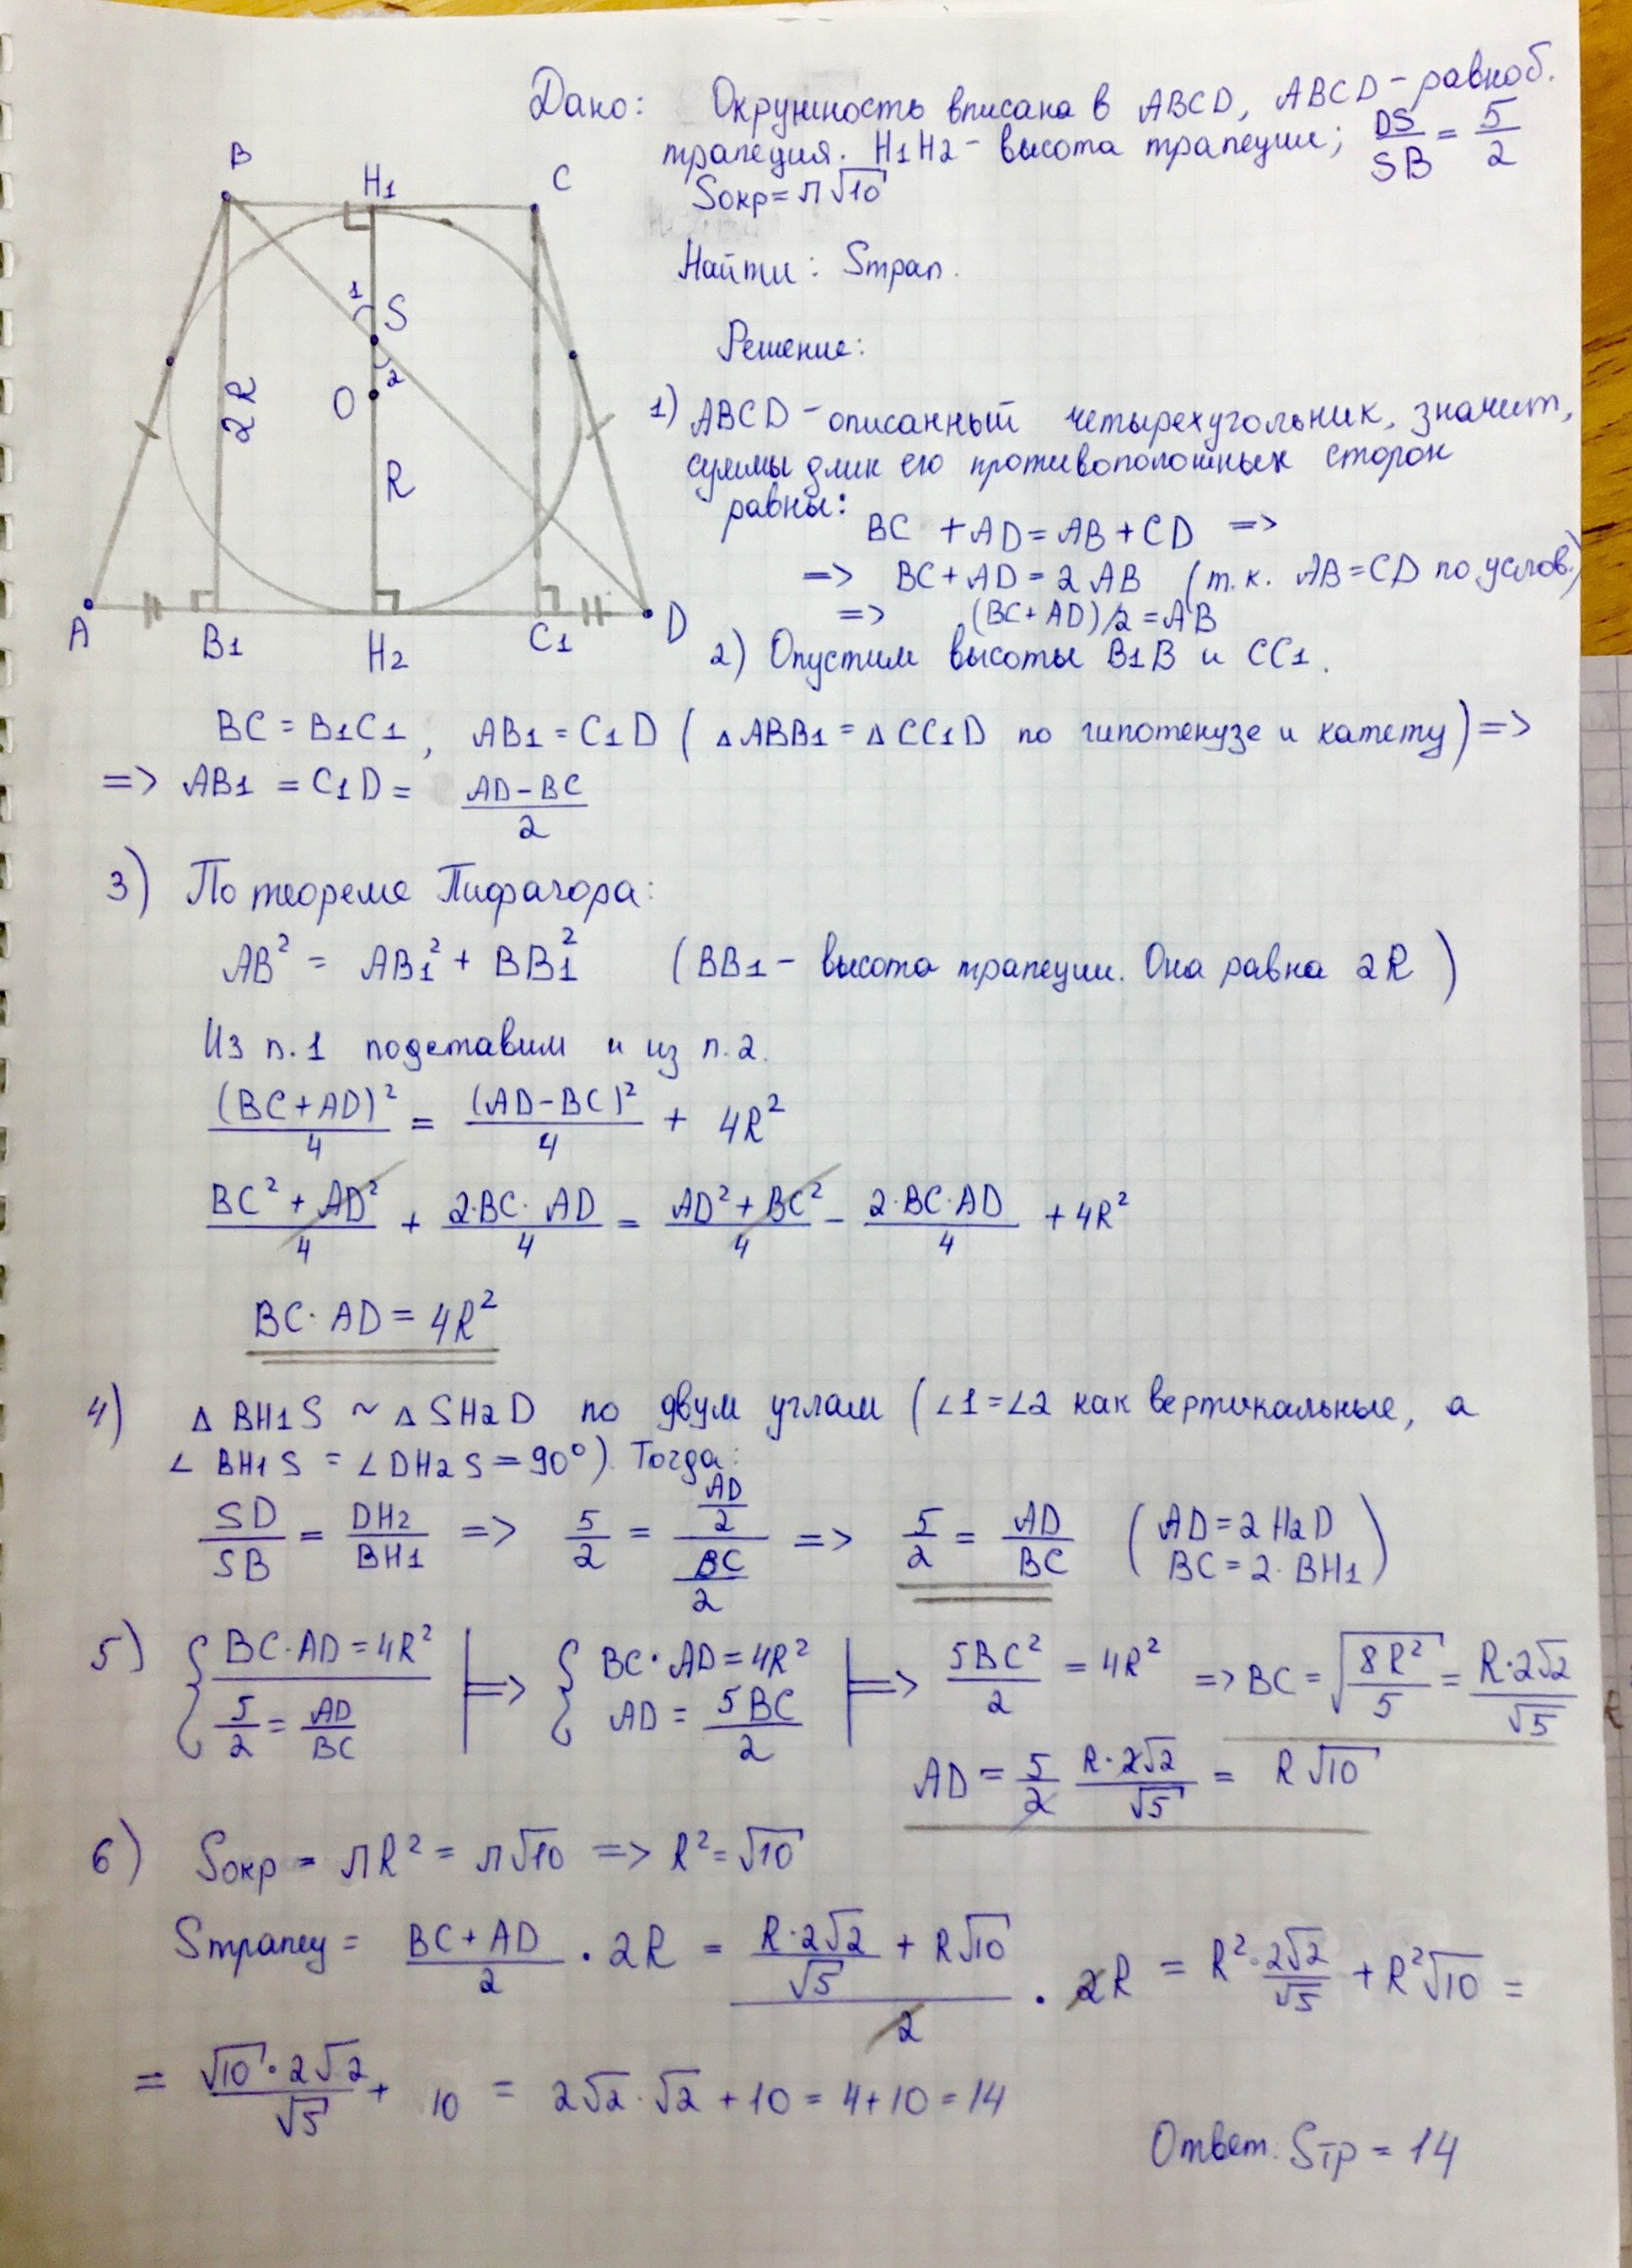 Дано: Окружность вписана в ABCD, ABCD - равноб.
трапеция. H1H2 - высота трапеции; DS/SB = 5/2
Sокр = π√10
Найти: Sтрап.
Решение:
B H1 C
1 S
2
O
2R
R
A B1 H2 C1 D
1) ABCD - описанный четырехугольник, значит,
суммы длин его противоположных сторон
равны:
BC + AD = AB + CD =>
=> BC + AD = 2AB (т.к. AB = CD по услов.)
=> (BC + AD)/2 = AB
2) Опустим высоты B1B и CC1.
BC = B1C1, AB1 = C1D (△ABB1 = △CC1D по гипотенузе и катету) =>
=> AB1 = C1D = (AD - BC)/2
3) По теореме Пифагора:
AB² = AB1² + BB1² (BB1 - высота трапеции. Она равна 2R)
Из п.1 подставим и из п.2.
(BC + AD)²/4 = (AD - BC)²/4 + 4R²
(BC² + AD²)/4 + 2·BC·AD/4 = (AD² + BC²)/4 - 2·BC·AD/4 + 4R²
BC · AD = 4R²
4) △BH1S ~ △SH2D по двум углам (∠1 = ∠2 как вертикальные, а
∠BH1S = ∠DH2S = 90°). Тогда:
SD/SB = DH2/BH1 => 5/2 = (AD/2)/(BC/2) => 5/2 = AD/BC (AD = 2H2D
BC = 2·BH1)
5) { BC·AD = 4R² |=> { BC·AD = 4R² |=> 5BC²/2 = 4R² => BC = √(8R²/5) = R·2√2/√5
5/2 = AD/BC AD = 5BC/2
AD = 5/2 R·2√2/√5 = R√10
6) Sокр = πR² = π√10 => R² = √10
Sтрапец = (BC + AD)/2 · 2R = (R·2√2/√5 + R√10)/2 · 2R = R²·2√2/√5 + R²√10 =
= √10·2√2/√5 + 10 = 2√2·√2 + 10 = 4 + 10 = 14
Ответ: Sтр = 14